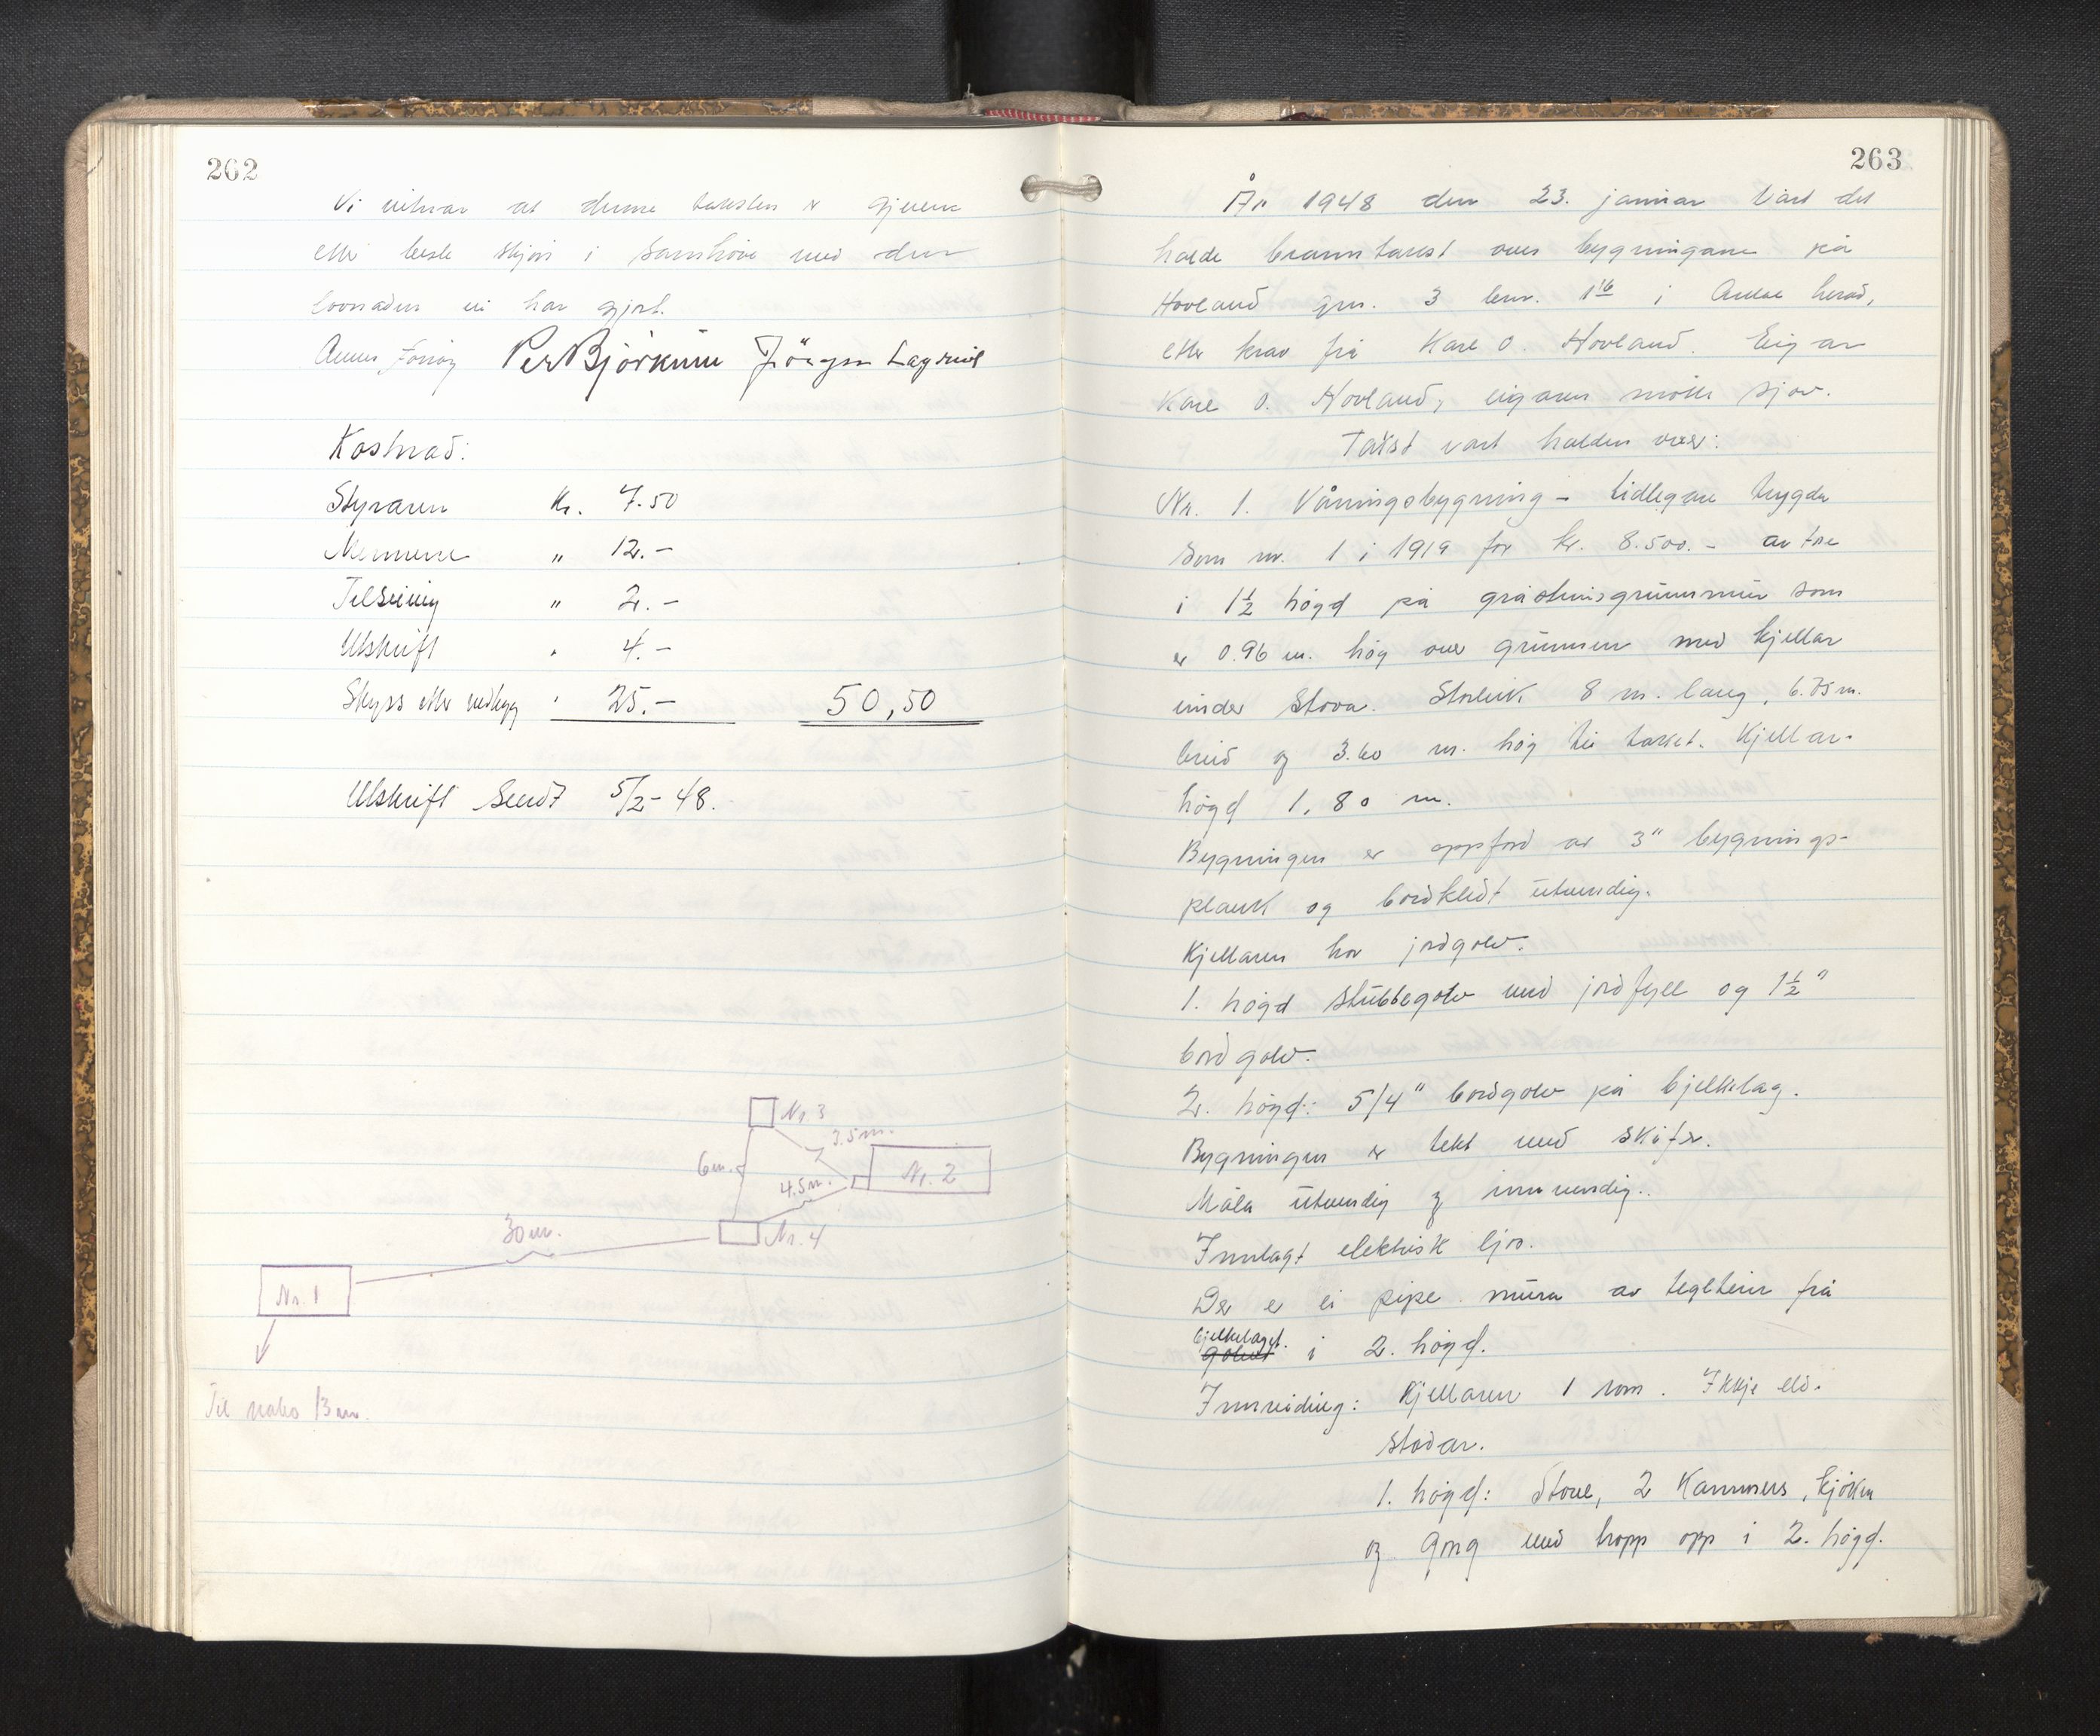 262
Vi vitnar at denne taksten er gjeven
etter beste skjøn i samhøve med den
lovnaden vi har gjort.
Per Bjørkum Jörgen
Kostnad:
Styraren Kr. 7.50
Mennene " 12.-
Tilsuing " 2.-
Utskrift " 4.-
Skyss etter vedlegg " 25.- 50,50
Utskrift Sendt 5/2-48.
Nr. 3
3.5m.
6m.
4.5m.
Nr. 2
30m.
Nr. 4
Nr. 1
Til nabo 13 m.
263
År 1948 den 23. januar vart det
halde branntakst over bygningane på
Hovland gnr. 3 bnr. 116 i herad,
etter krav frå Kåre O. Hovland. Eigar
Kåre O. Hovland, eigaren møtte sjøv.
Takst vart halden over:
Nr. 1. Våningsbygning - tidlegare trygda
som nr. 1 i 1919 for kr. 8.500.- av tre
i 1½ høgd på gråsteinsgrunnmur som
er 0.96 m. høg over grunnen med kjellar
under stova. Storleik 8 m. lang, 6.75 m.
breid og 3.60 m. høg til taket. Kjellar-
høgd 1.80 m.
Bygningen er oppförd av 3" bygnings-
plank og bordkledt utvendig.
Kjellaren har jordgolv.
1. høgd stubbegolv med jordfyll og 1½"
bordgolv.
2. høgd: 5/4" bordgolv på bjelkelag.
Bygningen er tekt med skifer.
Måla utvendig og innvendig.
Innlagt elektrisk ljos.
Der er ei pipe mura av teglstein frå
bjelkelaget
golvet i 2. høgd.
Innreiding: Kjellaren 1 rom. Ikkje eld-
stadar.
1. høgd: Stove, 2 Kammers, kjøken
og gong med tropp opp i 2. høgd.